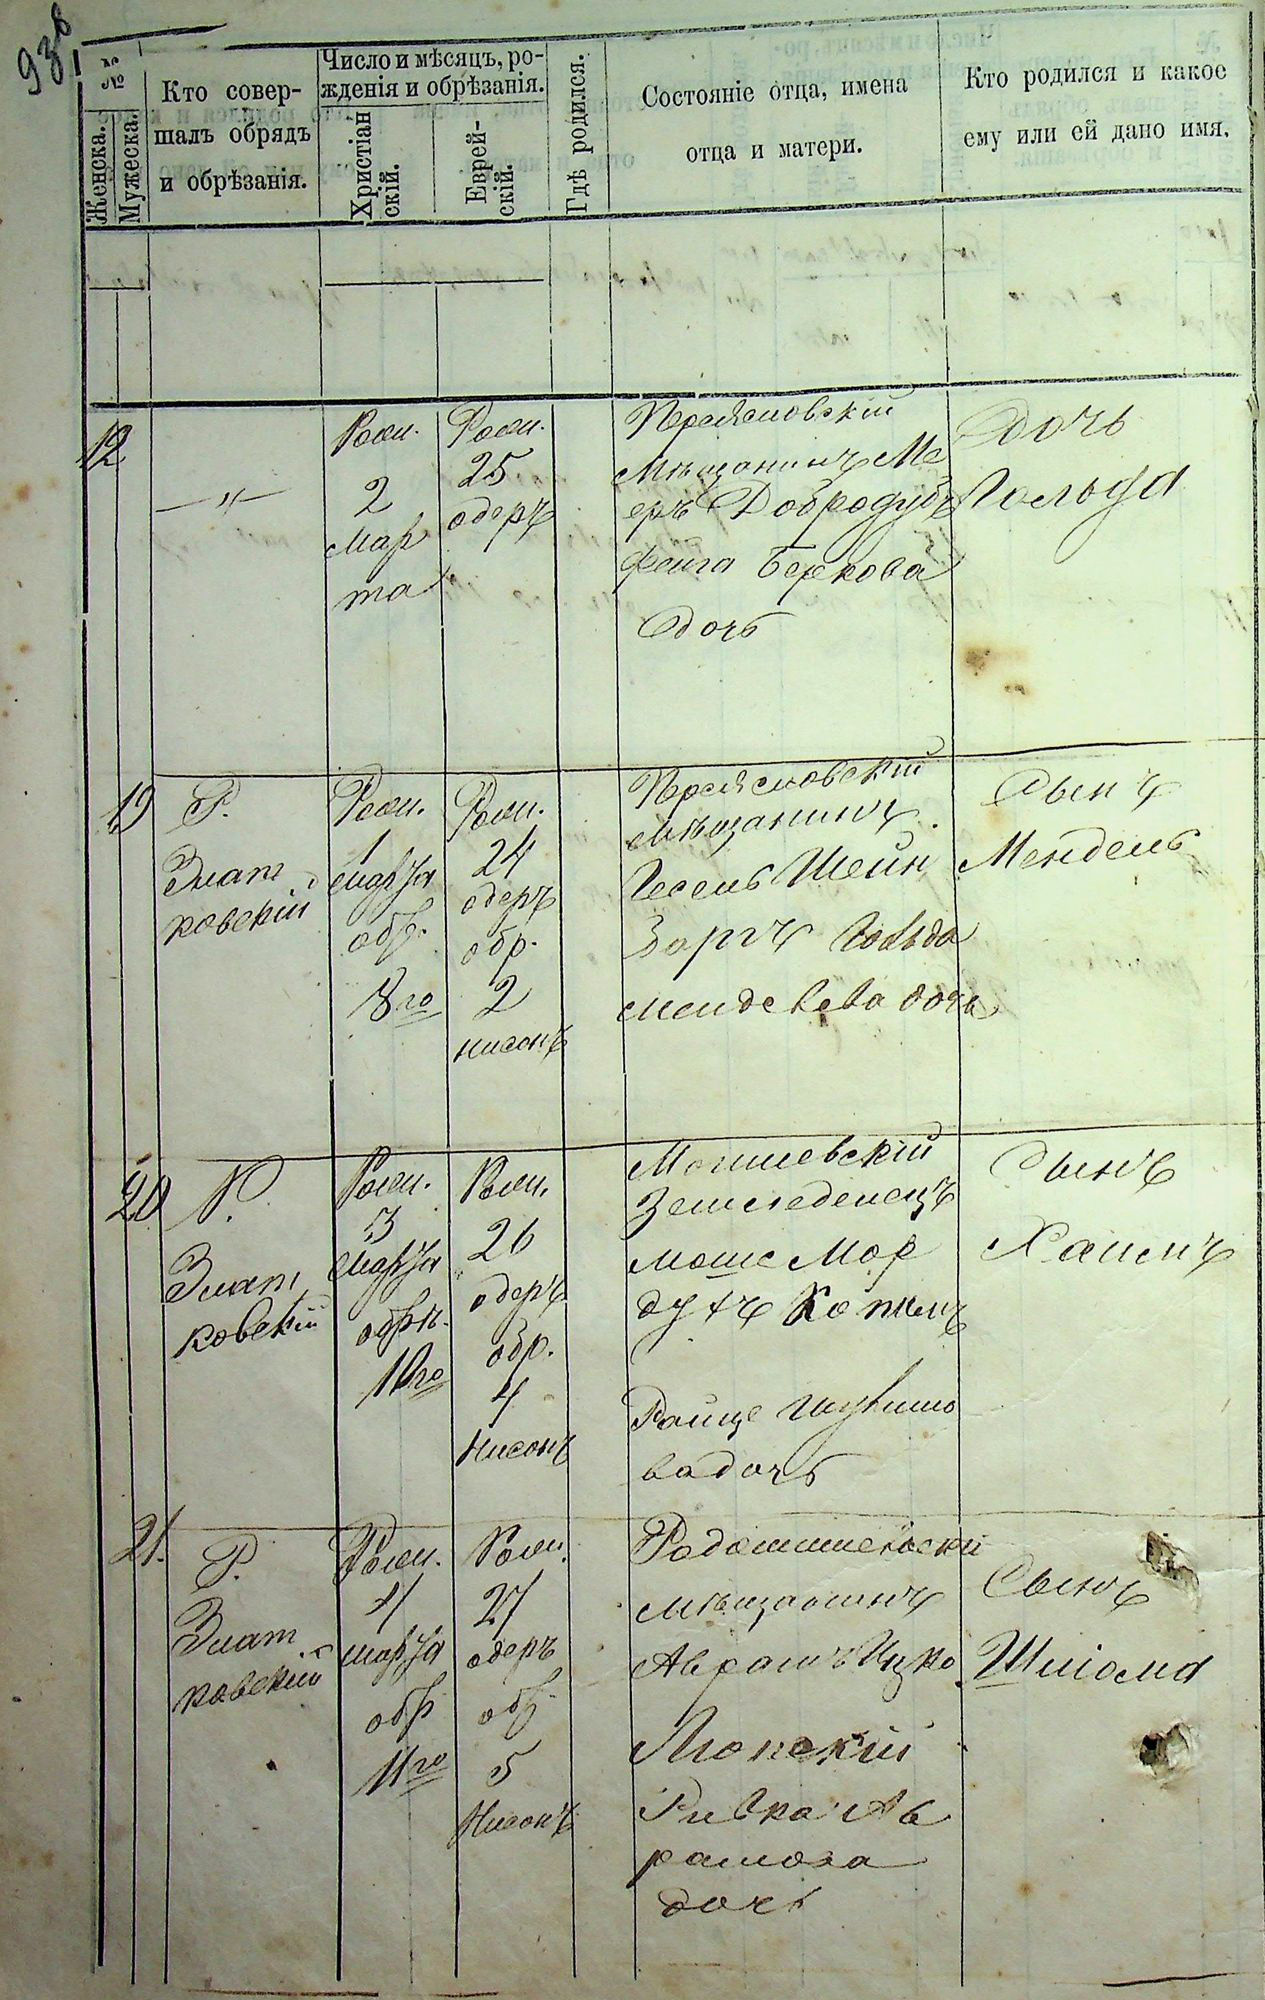 938
№
Женска.
Мужеска.
Кто совер-
шалъ обрядъ
и обрѣзанія.
Число и мѣсяцъ, ро-
жденія и обрѣзанія.
Христіан
скій.
Еврей-
скій.
Гдѣ родился.
Состояніе отца, имена
отца и матери.
Кто родился и какое
ему или ей дано имя.
12
—〃—
Роди.
2
Мар
та
Роди.
25
адеръ
Переясловскій
Мѣщанинъ Ме
еръ Добродубъ
Фейга Беркова
дочь
Дочь
Гольда
19
Р.
Злат
ковскій
Роди.
1
марта
обр.
8го
Роди.
24
адеръ
обр.
2
нисонъ
Переясловскій
мѣщанинъ
Іесель Шейн
Зоргъ Гольда
Менделева дочь
Сынъ
Мендель
20
Р.
Злат
ковскій
Роди.
3
марта
обрѣ.
10го
Роди.
26
адеръ
обр.
4
Нисонъ
Могилевскій
Земледелецъ
Моше Мор
духъ
Райце
ва дочь
Сынъ
Хаимъ
21.
Р.
Злат
ковскій
Роди.
4
марта
обр
11го
Роди.
27
адеръ
обр.
5
Нисонъ
мѣщанинъ
Аврамъ Ицко
Ривка Ав
рамова
дочь
Сынъ
Шліома